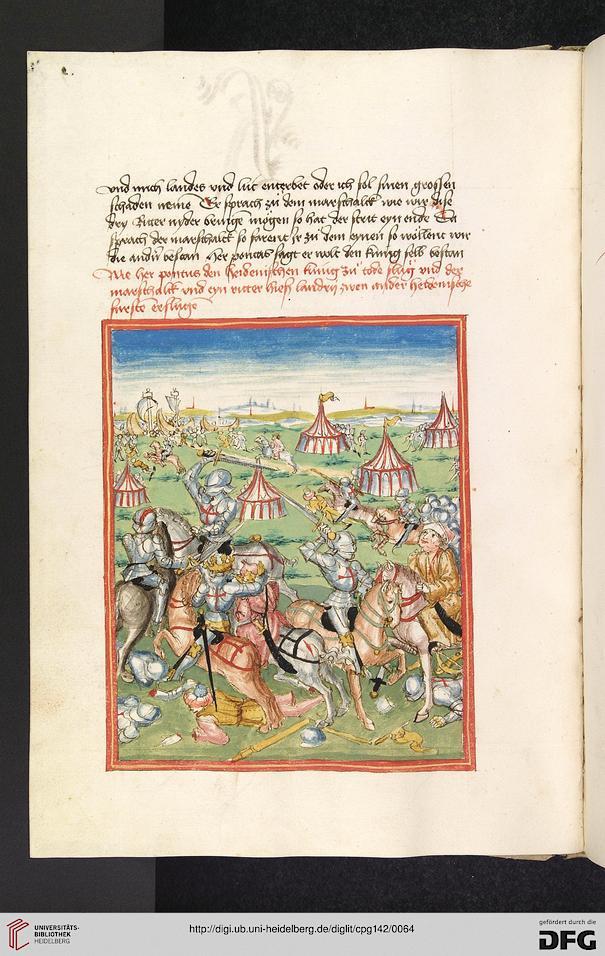 vnd mich landes vnd lüt enterbet oder ich sol sinen grossen
schaden neme Er sprach zü dem marschalck wie wir dise
dry Ritter nyder bringen mögen so hat der strit eyn ende Da
sprach der marschalck so farent ir zü dem eynen so wöllent wir
die andern bestan Her pontus sagt er wolt den künig selb bestan
Wie her pontus den heidenischen künig zü tode slüg vnd der
marschalck vnd eyn ritter hieß landry zwen ander heidenische
fürsten erslügen
UNIVERSITÄTS-
BIBLIOTHEK
HEIDELBERG
http://digi.ub.uni-heidelberg.de/diglit/cpg142/0064
gefördert durch die
DFG